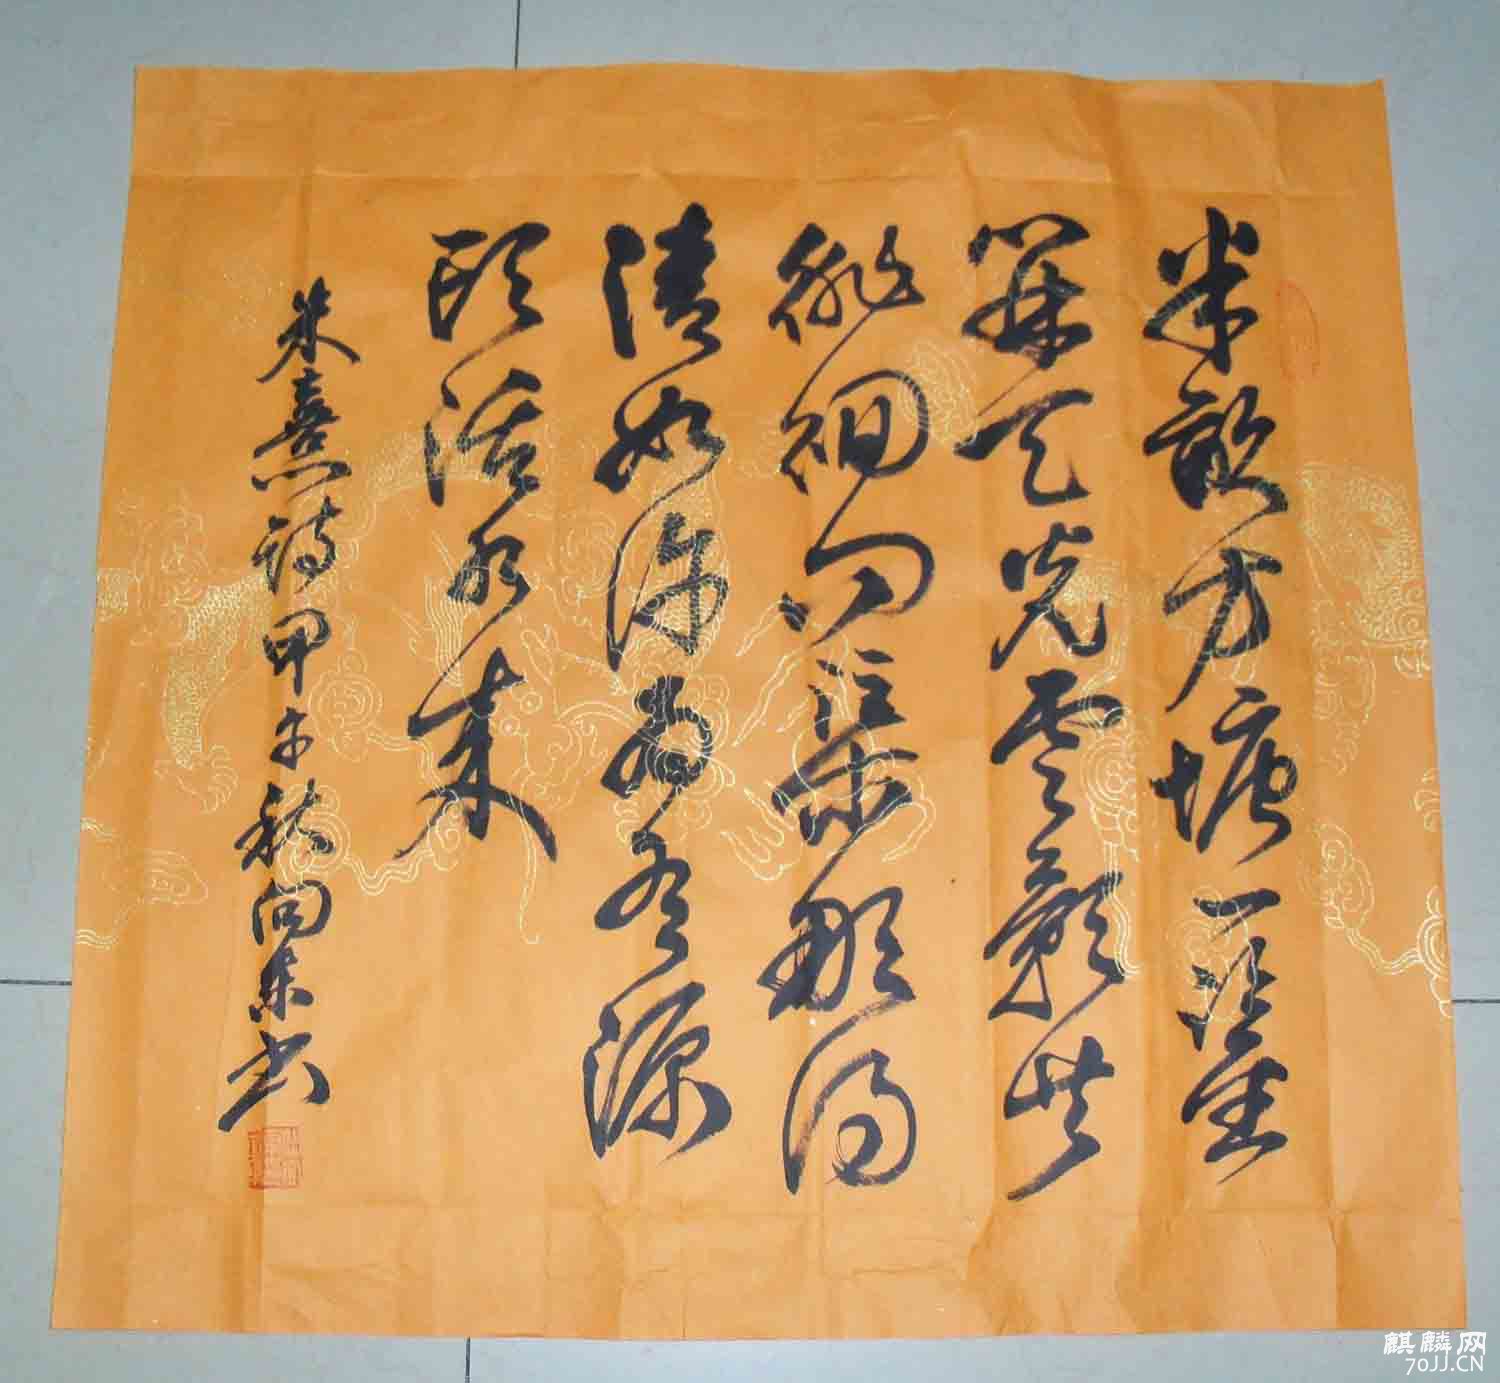 半畝方塘一鑒
開天光雲影共
徘徊问渠那得
清如许为有源
頭活水来
朱熹诗甲午秋向东书
麒麟网
70JJ.CN